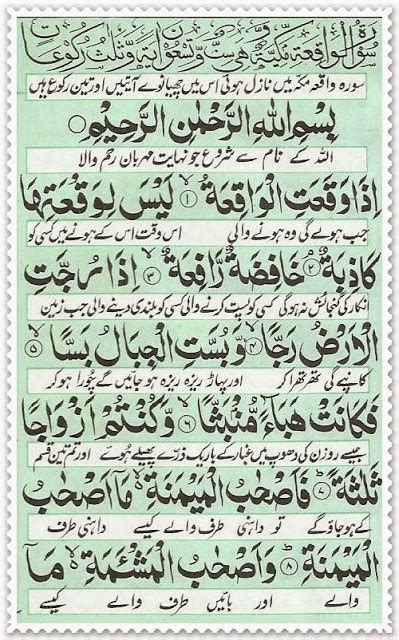 سُوْرَةُ الْوَاقِعَةِ مَكِّيَّةٌ وَّهِيَ سِتٌّ وَّتِسْعُوْنَ اٰيَةً وَّثَلٰثُ رُكُوْعَاتٍ
سورہ واقعہ مکہ میں نازل ہوئی اس میں چھیانوے آیتیں اور تین رکوع ہیں
بِسْمِ اللّٰهِ الرَّحْمٰنِ الرَّحِيْمِ
اللہ کے نام سے شروع جو نہایت مہربان رحم والا
اِذَا وَقَعَتِ الْوَاقِعَةُ ۙ﴿۱﴾ لَيْسَ لِوَقْعَتِهَا
جب ہولے گی وہ ہونے والی اس وقت اس کے ہونے میں کسی کو
كَاذِبَةٌ ۘ﴿۲﴾ خَافِضَةٌ رَّافِعَةٌ ۙ﴿۳﴾ اِذَا رُجَّتِ
انکار کی گنجائش نہ ہوگی کسی کو پست کرنے والی کسی کو بلندی دینے والی جب زمین
الْاَرْضُ رَجًّا ۙ﴿۴﴾ وَّبُسَّتِ الْجِبَالُ بَسًّا ۙ﴿۵﴾
کانپے گی تھرتھرا کر اور پہاڑ ریزہ ریزہ ہو جائیں گے چورا ہو کر
فَكَانَتْ هَبَآءً مُّنْۢبَثًّا ۙ﴿۶﴾ وَّكُنْتُمْ اَزْوَاجًا
جیسے روزن کی دھوپ میں غبار کے باریک ذرے پھیلے ہوئے اور تم تین قسم
ثَلٰثَةً ؕ﴿۷﴾ فَاَصْحٰبُ الْمَيْمَنَةِ ۙ مَاۤ اَصْحٰبُ
کے ہو جاؤ گے تو داہنی طرف والے کیسے داہنی طرف
الْمَيْمَنَةِ ؕ﴿۸﴾ وَاَصْحٰبُ الْمَشْـَٔمَةِ ۙ مَاۤ
والے اور بائیں طرف والے کیسے